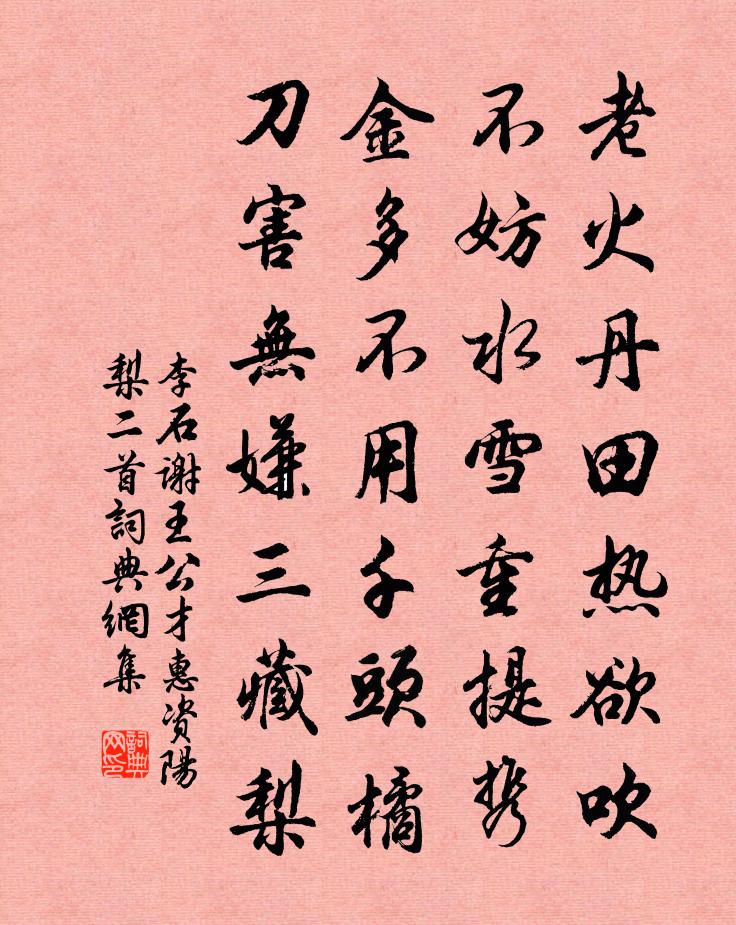 老火丹田热欲吹
不妨水雪重提携
金多不用千頭橘
刀害無嫌三藏梨
李石谢王公才惠资陽
梨二首詞典網集
詞典
网印